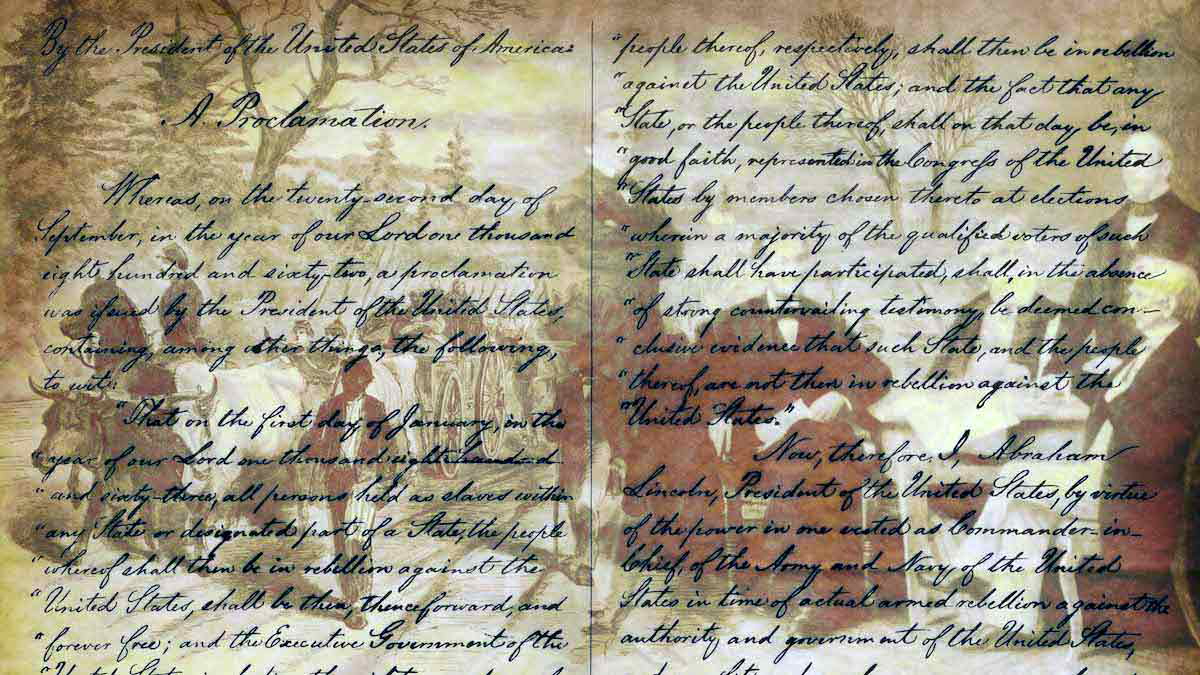 By the President of the United States of America:
A Proclamation.
Whereas, on the twenty-second day of
September, in the year of our Lord one thousand
eight hundred and sixty-two, a proclamation
was issued by the President of the United States,
containing, among other things, the following,
to wit:
"That on the first day of January, in the
"year of our Lord one thousand eight hundred
"and sixty-three, all persons held as slaves within
"any State or designated part of a State, the people
"whereof shall then be in rebellion against the
"United States, shall be then, thenceforward, and
"forever free; and the Executive Government of the
"United States
"people thereof, respectively, shall then be in rebellion
"against the United States; and the fact that any
"State, or the people thereof, shall on that day be, in
"good faith, represented in the Congress of the United
"States by members chosen thereto at elections
"wherein a majority of the qualified voters of such
"State shall have participated, shall, in the absence
"of strong countervailing testimony, be deemed con-
"clusive evidence that such State, and the people
"thereof, are not then in rebellion against the
"United States."
Now, therefore I, Abraham
Lincoln, President of the United States, by virtue
of the power in me vested as Commander-in-
Chief, of the Army and Navy of the United
States in time of actual armed rebellion against the
authority and government of the United States,